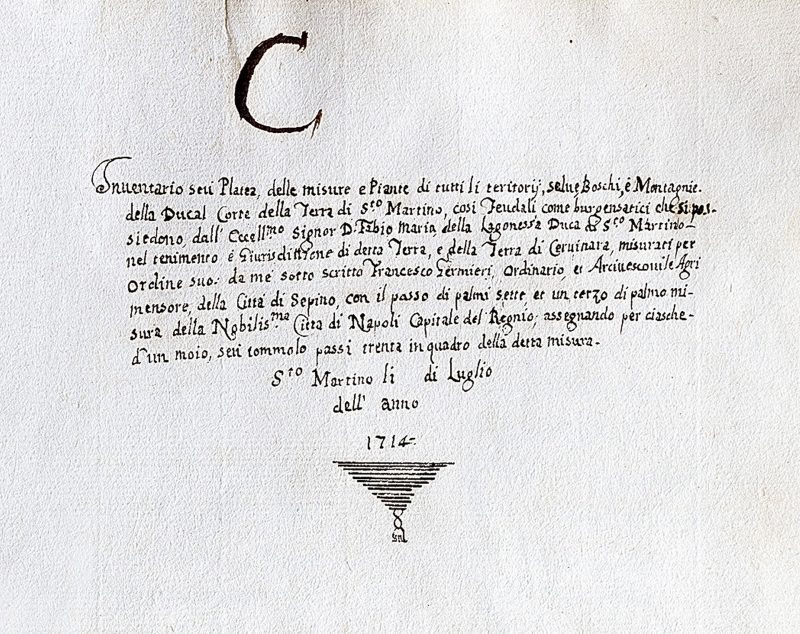 C
Inventario seu Platea, delle misure e Piante di tutti li teritorij, selue Boschi, è Montagnie.
della Ducal Corte della Terra di S.to Martino, così feudali come burgensatici che si pos-
siedono, dall' Eccell.mo Signor D. Fabio Maria della Lagonessa Duca di S.to Martino-
nel tenimento è Giurisdittione di detta Terra, e della Terra di Ceruinara, misurati per
Ordine suo: da me sotto scritto Francesco Germieri, Ordinario, et Arciuescouile Agri
mensore, della Città di Sepino, con il passo di palmi sette, et un terzo di palmo mi-
sura della Nobilis.ma Città di Napoli Capitale del Regnio; assegnando per ciasche-
d'un moio, seu tommolo passi trenta in quadro della detta misura.
S.to Martino li di Luglio
dell' anno
1714